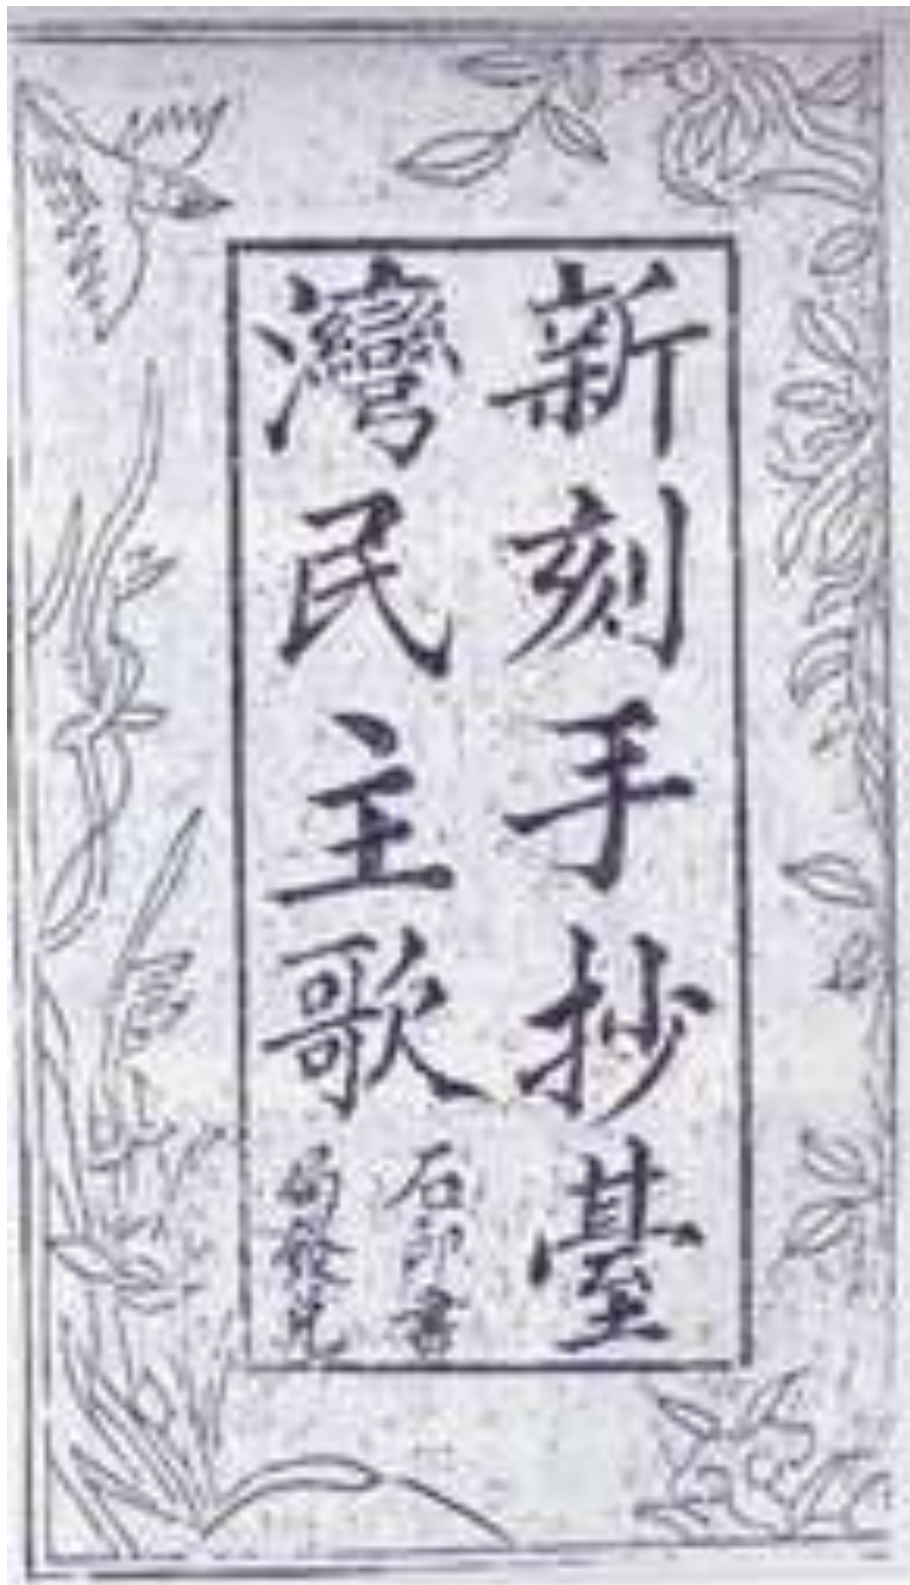 新刻手抄臺
灣民主歌
石印書
局發兌